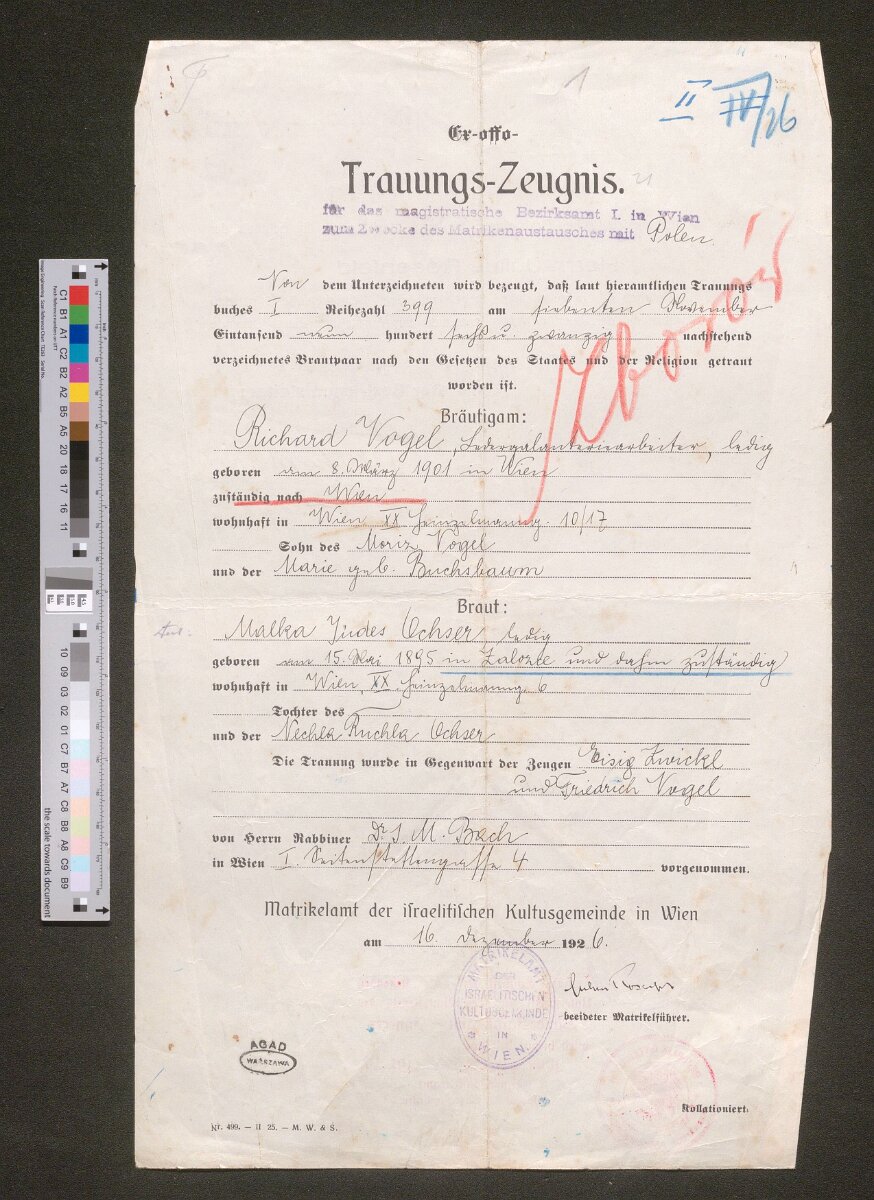 1
II IV/26
Ex-offo-
Trauungs-Zeugnis.
für das magistratische Bezirksamt I. in Wien
zum Zwecke des Matrikenaustausches mit Polen.
Von dem Unterzeichneten wird bezeugt, daß laut hieramtlichen Trauungs
buches I Reihezahl 399 am siebenten November
Eintausend neun hundert sechs u. zwanzig nachstehend
verzeichnetes Brautpaar nach den Gesetzen des Staates und der Religion getraut
worden ist.
Zborów
Bräutigam:
Richard Vogel, Ledergalanteriearbeiter, ledig
geboren am 8. März 1901 in Wien
zuständig nach Wien
wohnhaft in Wien XX Heinzelmanng. 10/17
Sohn des Moriz Vogel
und der Marie geb. Buchsbaum
Braut:
Malka Jides Ochser ledig
geboren am 15. Mai 1895 in Zalozce und dahin zuständig
wohnhaft in Wien, XX, Heinzelmanng 6
Tochter des
und der Nechla Ruchla Ochser
Die Trauung wurde in Gegenwart der Zeugen Eisig Zwickl
und Friedrich Vogel
von Herrn Rabbiner Dr. J. M. Bach
in Wien I. Seitenstettengasse 4 vorgenommen.
Matrikelamt der israelitischen Kultusgemeinde in Wien
am 16. Dezember 1926.
MATRIKELAMT
DER
ISRAELITISCHEN
KULTUSGEMEINDE
IN
WIEN.
beeideter Matrikelführer.
AGAD
WARSZAWA
Kollationiert:
Nr. 499. — II 25. — M. W. & S.
C1 B1 A1 C2 B2 A2 B5 A5 20 18 17 16 11
10 09 03 02 01 C7 B7 A7 C8 B8 A8 C9 B9
the scale towards document